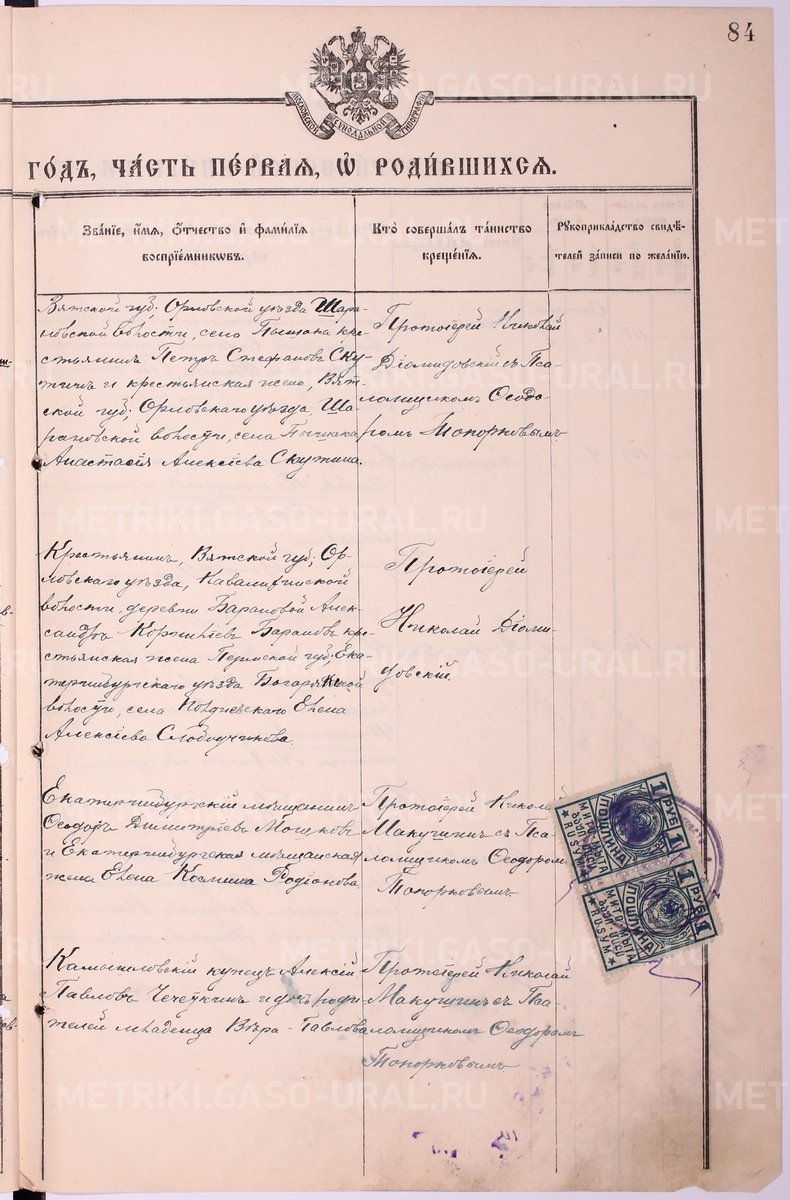 84
МОСКОВСКОЙ СѴНОДАЛЬНОЙ ТИПОГРАФІИ
ГОДЪ, ЧАСТЬ ПЕРВАЯ, Ѡ РОДИВШИХСЯ.
Званіе, имя, отчество и фамилія воспріемниковъ.
Кто совершалъ таинство крещенія.
Рукоприкладство свидѣтелей записи по желанію.
Вятской губ; Орловской уѣзда Шара-
новской волости, села Пышака кре-
стьянинъ Петръ Стефановъ Ску-
тинъ и крестьянская жена, Вят-
ской губ; Орловскаго уѣзда, Ша-
рановской волости, села Пышака
Анастасія Алексіева Скутина.
Протоіерей Николай
Діомидовскій съ Пса-
ломщикомъ Ѳеодо-
ромъ Топорковымъ
Крестьянинъ, Вятской губ; Ор-
ловскаго уѣзда,
волости, деревни Барановой Алек-
сандръ Корниліевъ Барановъ кре-
стьянская жена Пермской губ; Ека-
теринбургскаго уѣзда Багарякской
волости, села Елена
Алексіева Слободчикова.
Протоіерей
Николай Діоми-
довскій.
Екатеринбургскій мѣщанинъ
Ѳеодоръ Димитріевъ Мошковъ
и Екатеринбургская мѣщанская
жена Елена Космина Родіонова
Протоіерей Николай
Макушинъ съ Пса-
ломщикомъ Ѳеодоромъ
Топорковымъ.
Камышловскій купецъ Алексій
Павловъ Чечёткинъ и дочь роди-
телей младенца Вѣра Павлова
Протоіерей Николай
Макушинъ съ Пса-
ломщикомъ Ѳеодоромъ
Топорковымъ
1 РУБ 1
ПОШЛИНА
МИТО МЫТА
★ROSYM★
1 РУБ 1
ПОШЛИНА
МИТО МЫТА
★ROSYM★
METRIKI.GASO-URAL.RU